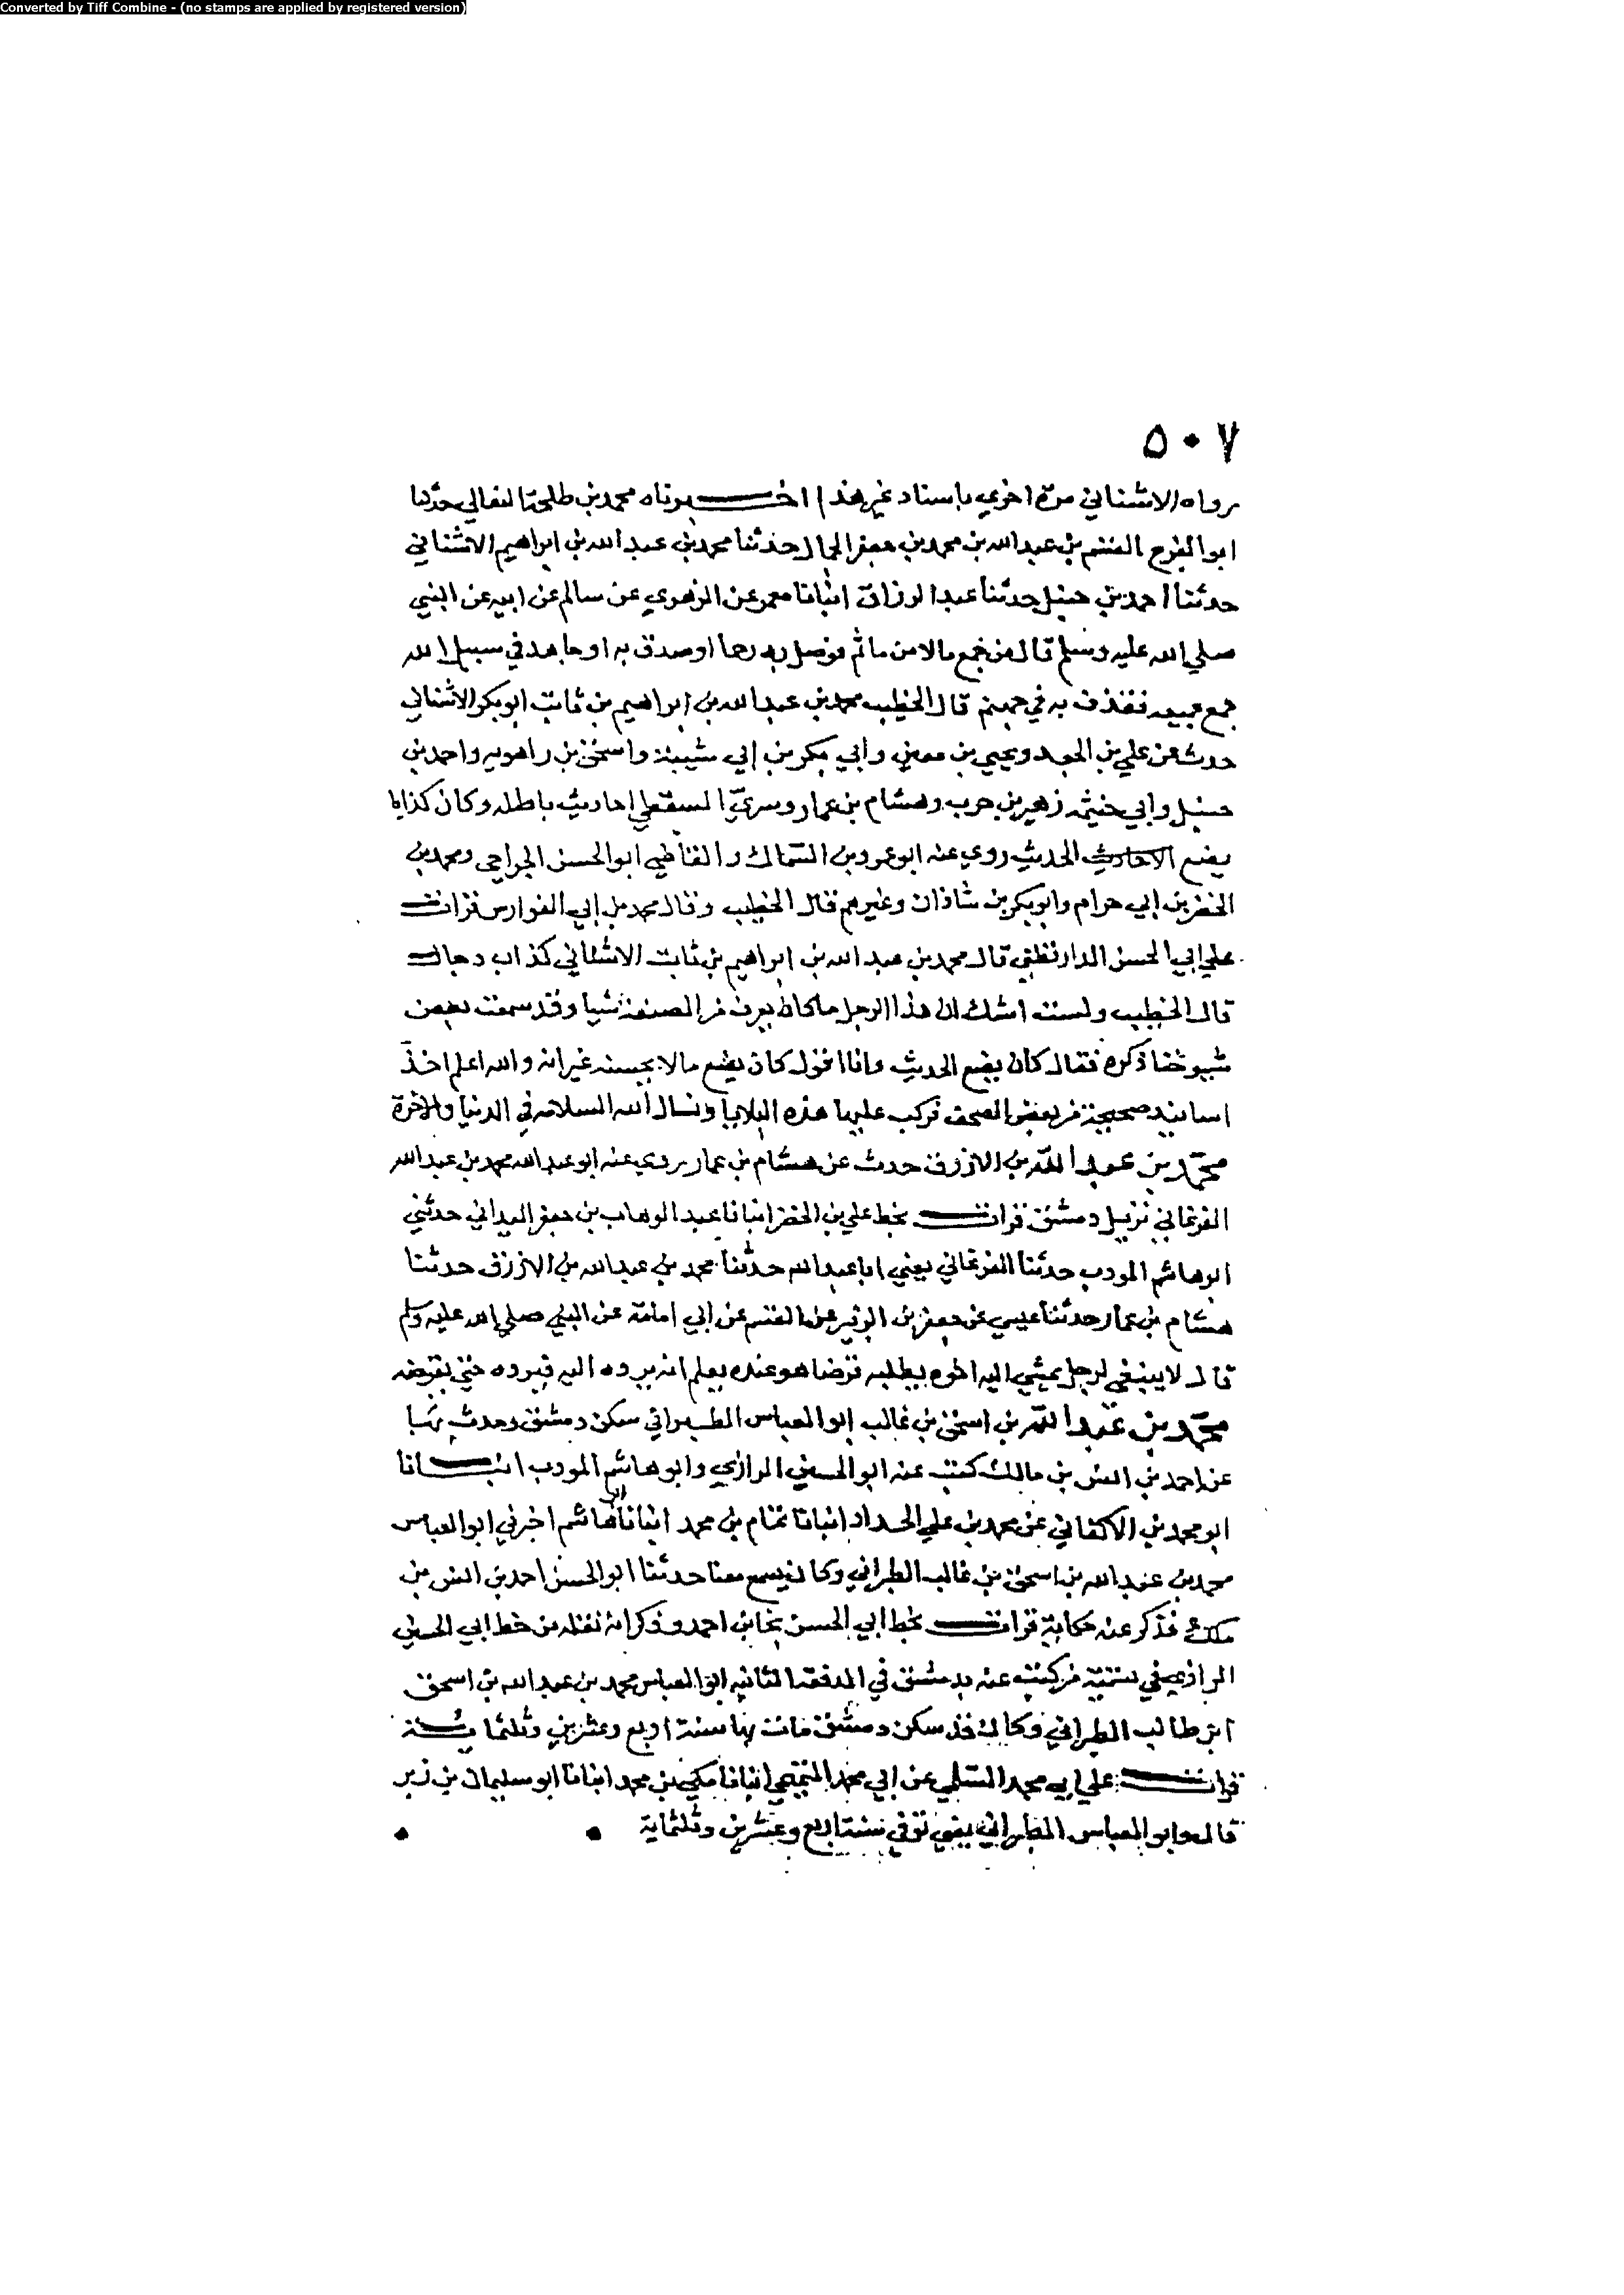 Converted by Tiff Combine - (no stamps are applied by registered version)
٥٠٧
رواه الاشناني مرة اخري باسناد غير هذا اخبرناه محمد بن طلحة النعالي حدثنا
ابو الفرج القسم بن عبد الله بن محمد بن جعفر الجمال حدثنا محمد بن عبد الله بن ابراهيم الاشناني
حدثنا احمد بن حنبل حدثنا عبد الرزاق انبانا معمر عن الزهري عن سالم عن ابيه عن النبي
صلي الله عليه وسلم قال من جمع مالا من ماثم فوصل به رحما او صدق به او جاهد في سبيل الله
جمع جميعه فقذف به في جهنم قال الخطيب محمد بن عبد الله بن ابراهيم بن ثابت ابو بكر الاشناني
حدث عن علي بن الجعد ويحيي بن معين وابي بكر بن ابي شيبة واسحق بن راهويه واحمد بن
حنبل وابي خيثمه زهير بن حرب وهشام بن عمار وسري السقطي احاديث باطله وكان كذابا
يضع الحديث روي عنه ابو عمرو بن السماك والقاضي ابو الحسن الجراحي ومحمد بن
الخضر بن ابي حزام وابو بكر بن شاذان وغيرهم قال الخطيب وقال محمد بن ابي الفوارس قرات
علي ابي الحسن الدارقطني قال محمد بن عبد الله بن ابراهيم بن ثابت الاشناني كذاب دجال
قال الخطيب ولست اشك ان هذا الرجل ما كان يعرف من الصنعة شيا وقد سمعت بعض
شيوخنا ذكره فقال كان يضع الحديث وانا اقول كان يضع مالا يحسنه غير انه والله اعلم اخذ
اسانيد صحيحة من بعض الصحف فركب عليها هذه البلايا ونسال الله السلامه في الدنيا والاخرة
محمد بن عبد الله بن الازرق حدث عن هشام بن عمار روي عنه ابو عبد الله محمد بن عبد الله
الفرغاني نزيل دمشق قرات بخط علي بن الخضر انبانا عبد الوهاب بن جعفر الميداني حدثني
ابو هاشم المودب حدثنا الفرغاني يعني ابا عبد الله حدثنا محمد بن عبد الله بن الازرق حدثنا
هشام بن عمار حدثنا عيسي عن جعفر بن الزبير عن القسم عن ابي امامة عن النبي صلي الله عليه وسلم
قال لا ينبغي لرجل يمشي اليه اخوه يطلبه قرضا هو عنده يعلم انه يرده اليه فيرده حتي يقرضه
محمد بن عبد الله بن اسحق بن غالب ابو العباس الطبراني سكن دمشق وحدث بها
عن احمد بن انس بن مالك كتب عنه ابو الحسين الرازي وابو هاشم المودب انبانا
ابو محمد بن الاكفاني عن محمد بن علي الحداد انبانا تمام بن محمد انبانا ابو هاشم اخبرني ابو العباس
محمد بن عبد الله بن اسحق بن غالب الطبراني وكان يسمع معنا حدثنا ابو الحسن احمد بن انس بن
ملك فذكر عنه حكاية قرات بخط ابي الحسن نجا بن احمد وذكر انه نقله من خط ابي الحسين
الرازي في تسمية من كتب عنه بدمشق في الدفعة الثانيه ابو العباس محمد بن عبد الله بن اسحق
ابن طالب الطبراني وكان قد سكن دمشق مات بها سنة اربع وعشرين وثلثماية
قرات علي ابي محمد السلمي عن ابي محمد التميمي انبانا مكي بن محمد انبانا ابو سليمان بن زبر
قال وابو العباس الطبراني يعني توفي سنة اربع وعشرين وثلثماية